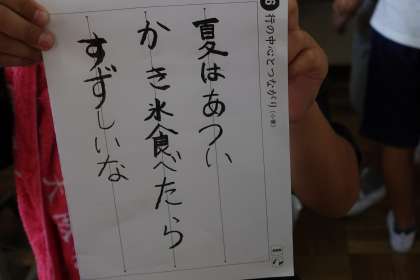 6 行の中心とつながり(小筆)
夏はあつい
かき氷食べたら
すずしいな